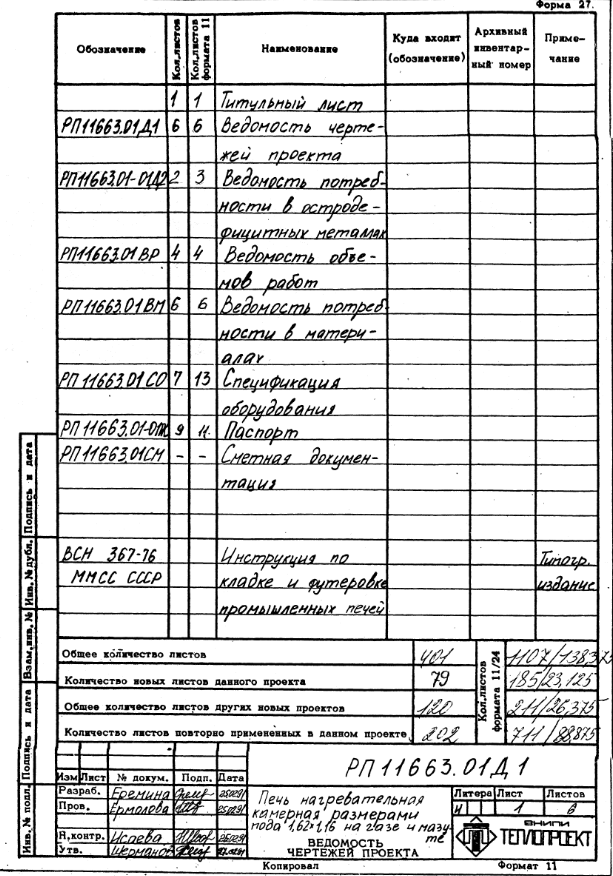 Форма 27.
Обозначение Кол.листов Кол.листов формата 11 Наименование Куда входит (обозначение) Архивный инвентарный номер Примечание
1 1 Титульный лист
РП11663.01Д1 6 6 Ведомость черте-
жей проекта
РП11663.01-01Д2 2 3 Ведомость потреб-
ности в остроде-
фицитных металлах
РП11663.01 ВР 4 4 Ведомость объе-
мов работ
РП11663.01ВМ 6 6 Ведомость потреб-
ности в матери-
алах
РП 11663.01 СО 7 13 Спецификация
оборудования
РП 11663.01-01 9 Паспорт
РП 11663.01СМ - - Сметная докумен-
тация
ВСН 367-76 Инструкция по Типогр.
ММСС СССР кладке и футеровке издание
промышленных печей
Общее количество листов 401 Кол.листов формата 11/24 1107/138,375
Количество новых листов данного проекта 79 185/23,125
Общее количество листов других новых проектов 120 211/26,375
Количество листов повторно примененных в данном проекте 202 711/88,875
Инв.№ подл. Подпись и дата Взам.инв.№ Инв.№ дубл. Подпись и дата
РП 11663.01Д1
Изм Лист № докум. Подп. Дата
Разраб. Еремина
Пров. Ермолова
Н.контр. Исаева
Утв. Шерманов
Печь нагревательная
камерная размерами
пода 1,62×1,16 на газе и мазуте
ВЕДОМОСТЬ
ЧЕРТЕЖЕЙ ПРОЕКТА
Литера Лист Листов
И 1 6
ВНИПИ
ТЕПЛОПРОЕКТ
Копировал Формат 11